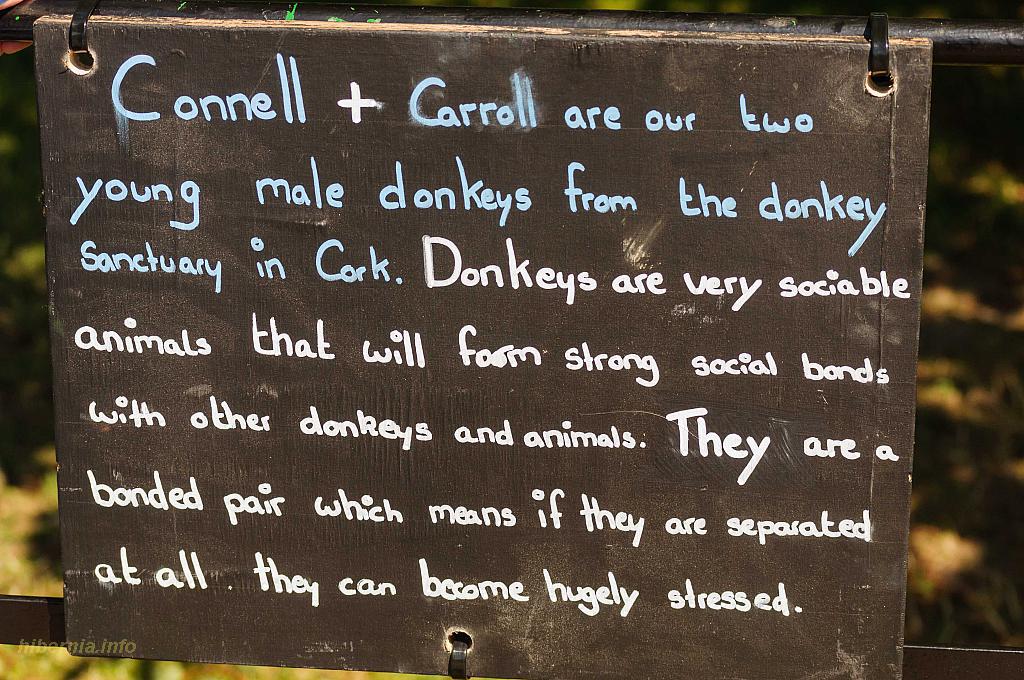 Connell + Carroll are our two
young male donkeys from the donkey
Sanctuary in Cork. Donkeys are very sociable
animals that will form strong social bonds
with other donkeys and animals. They are a
bonded pair which means if they are separated
at all. they can become hugely stressed.
hibernia.info